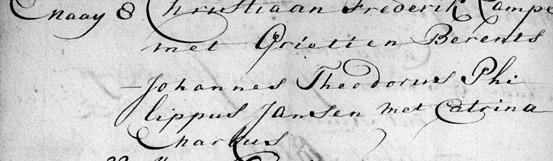 Maay 8 Christiaan Frederik Campe
met Grietien Berents
Johannes Theodorus Phi
lippus Jansen met Catrina
Charlus